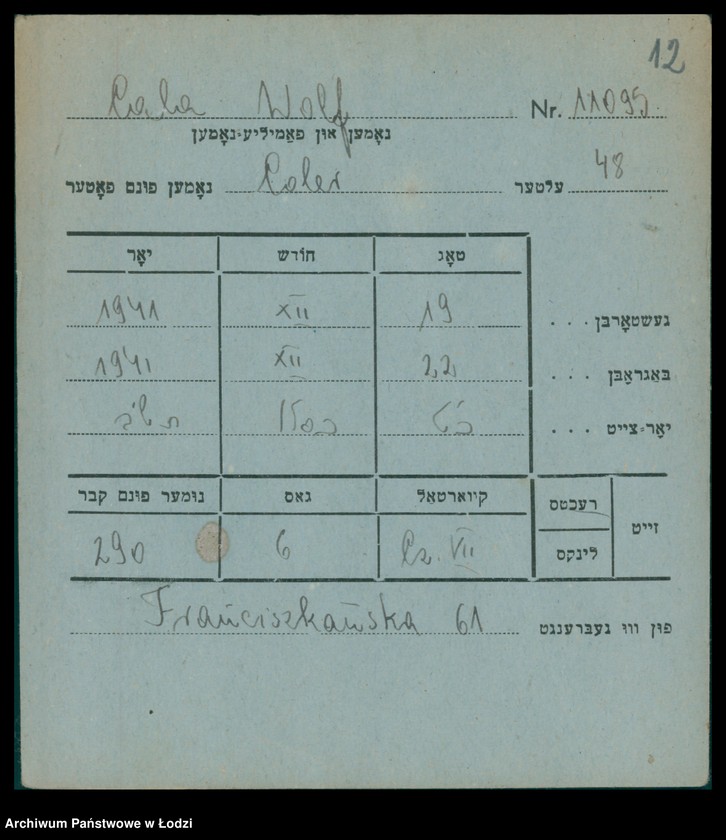 12
Lala Wolf Nr. 11095
נאָמען און פאַמיליע־נאָמען
נאָמען פונם פאָטער Loler עלטער 48
טאָג חודש יאָר
געשטאָרבן . . . 19 XII 1941
באַגראָבן . . . 22 XII 1941
יאָר־צייט . . . כ״ט כסלו תש״ב
זייט רעכטס לינקס קיוואַרטאַל גאַס נומער פונם קבר
Lz. VII 6 290
פון וווּ געברענגט Franciszkańska 61
Archiwum Państwowe w Łodzi